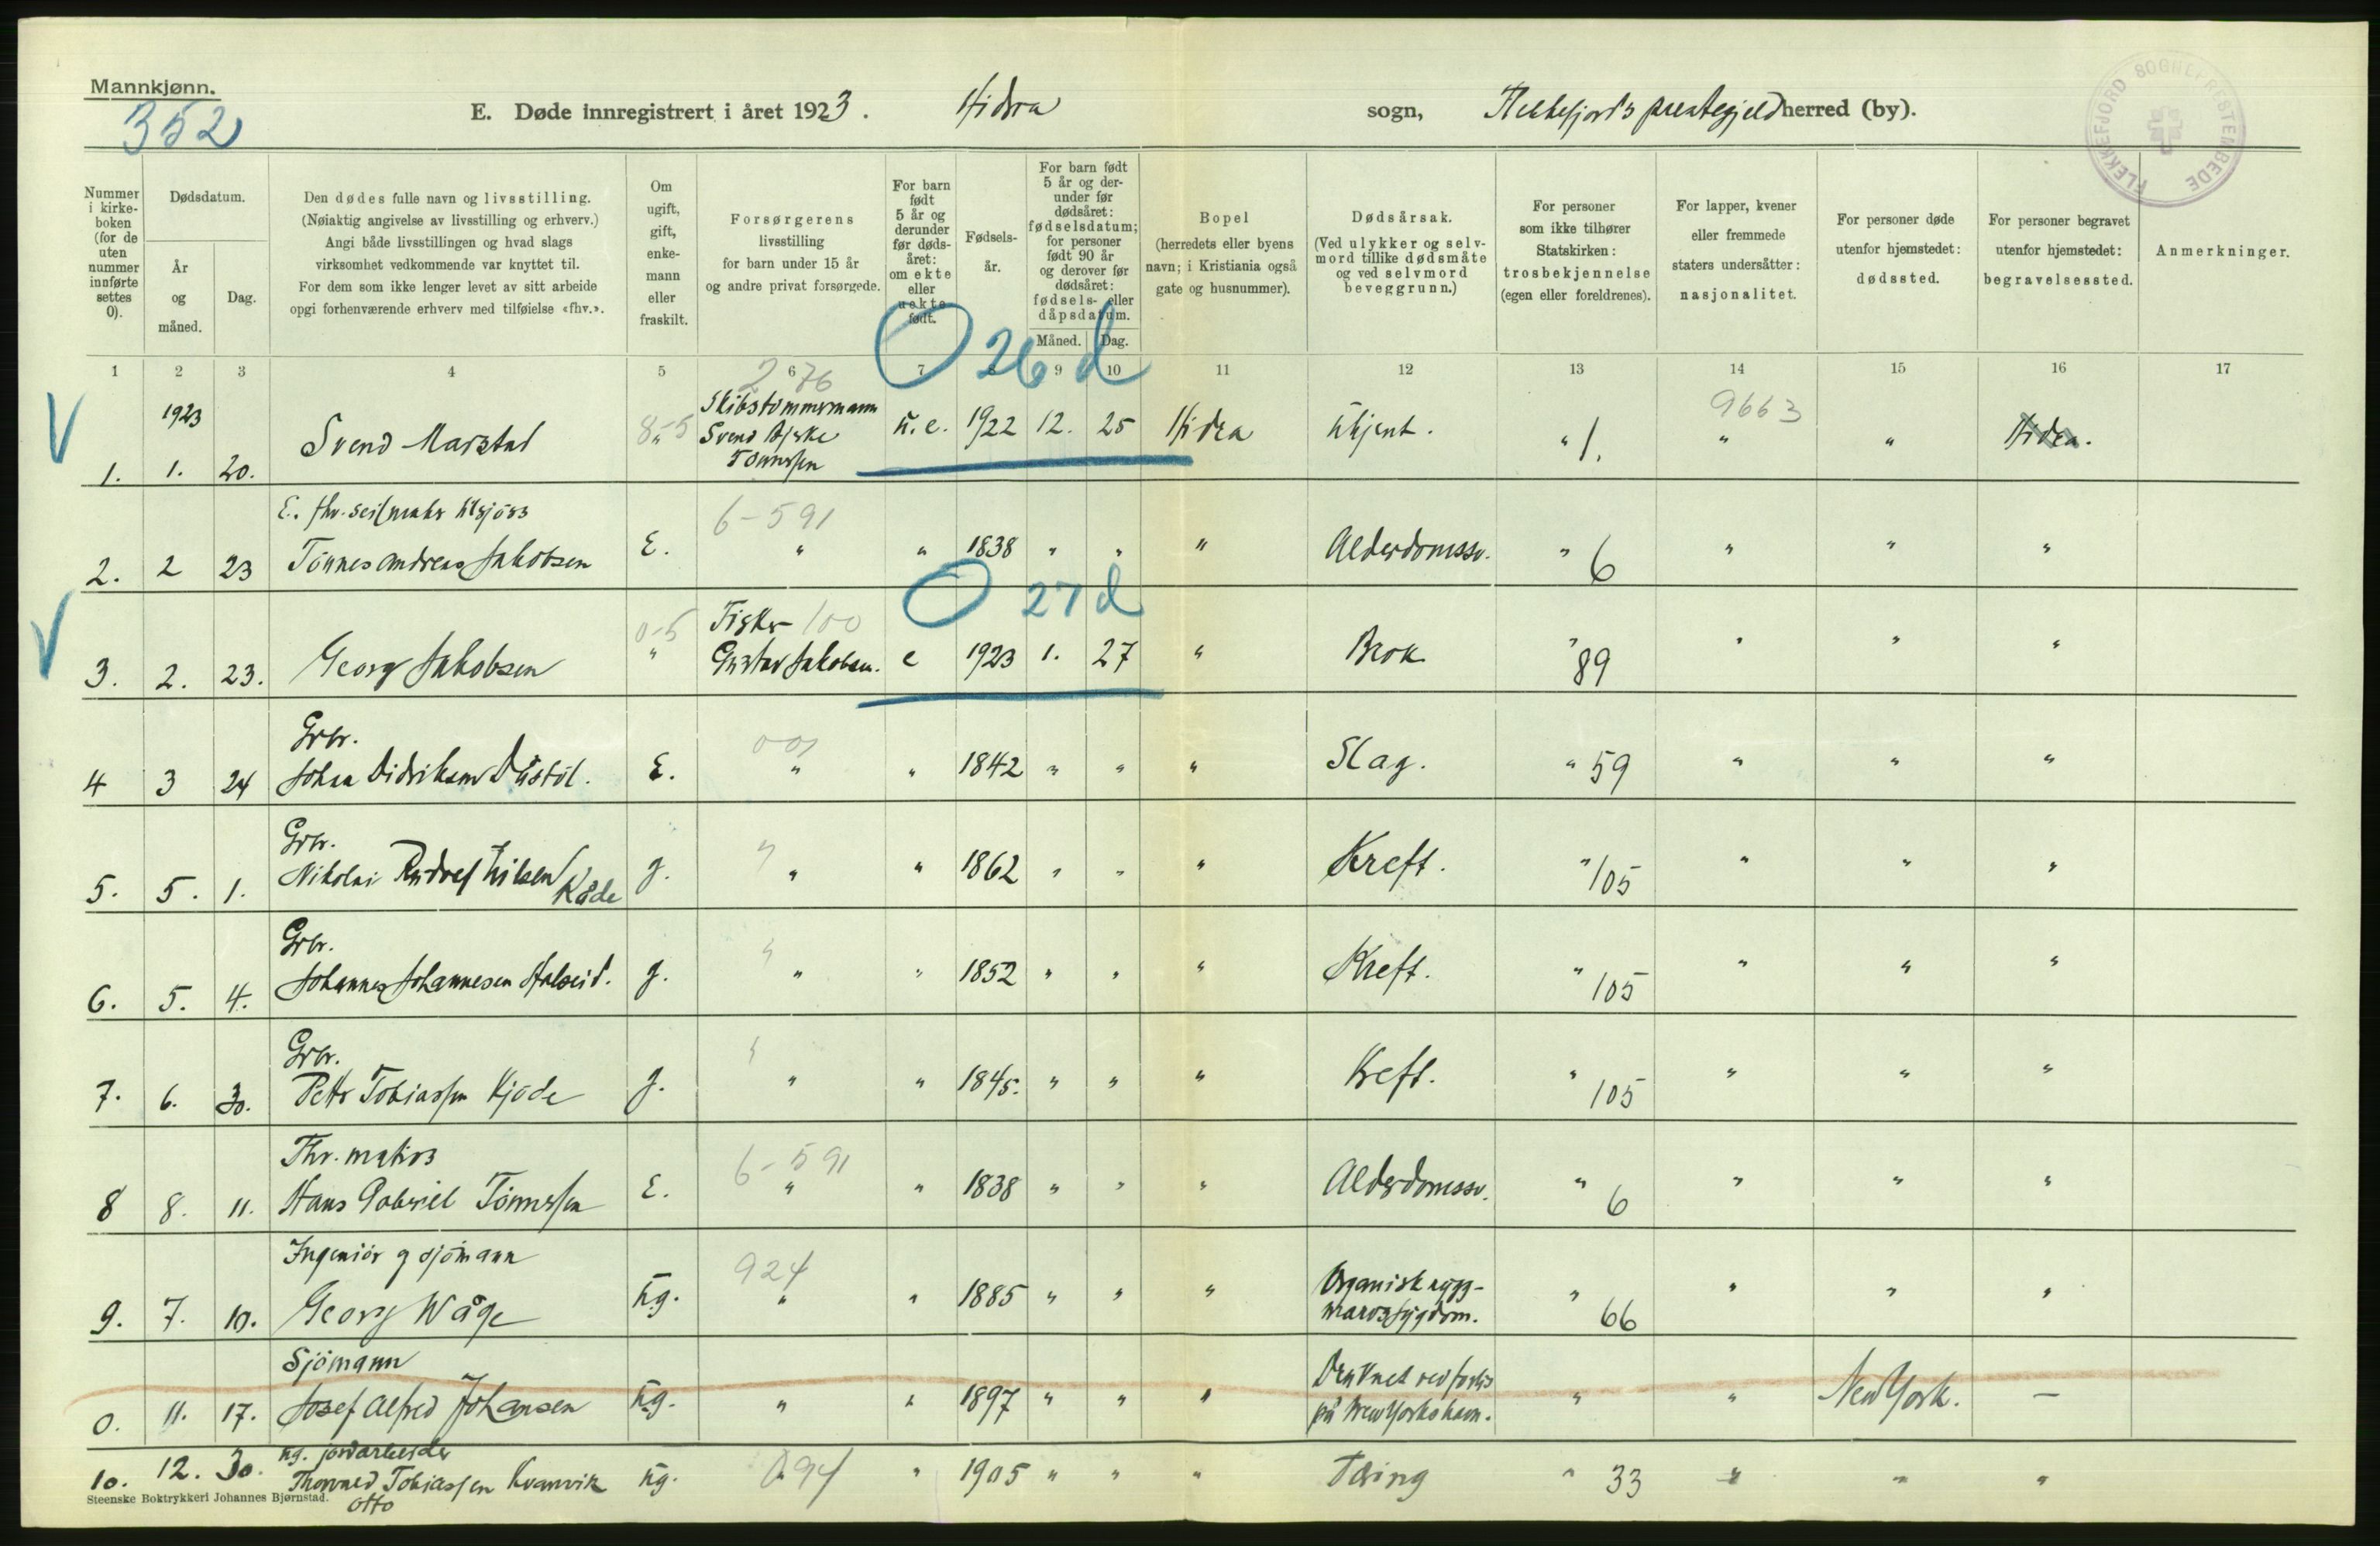 Mannkjønn.
352
E. Døde innregistrert i året 1923. Hidra sogn, Flekkefjords prestegjeld herred (by).
FLEKKEFJORD SOGNEPRESTEMBEDE
Nummer i kirkeboken (for de uten nummer innførte settes 0).
Dødsdatum.
År og måned.
Dag.
Den dødes fulle navn og livsstilling.
(Nøiaktig angivelse av livsstilling og erhverv.)
Angi både livsstillingen og hvad slags
virksomhet vedkommende var knyttet til.
For dem som ikke lenger levet av sitt arbeide
opgi forhenværende erhverv med tilføielse «fhv.».
Om ugift, gift, enkemann eller fraskilt.
Forsørgerens
livsstilling
for barn under 15 år
og andre privat forsørgede.
For barn født 5 år og derunder før dødsåret: om ekte eller uekte født.
Fødselsår.
For barn født 5 år og derunder før dødsåret: fødselsdatum; for personer født 90 år og derover før dødsåret: fødsels- eller dåpsdatum.
Måned. Dag.
Bopel
(herredets eller byens
navn; i Kristiania også
gate og husnummer).
Dødsårsak.
(Ved ulykker og selvmord tillike dødsmåte og ved selvmord beveggrunn.)
For personer
som ikke tilhører
Statskirken:
trosbekjennelse
(egen eller foreldrenes).
For lapper, kvener
eller fremmede
staters undersåtter:
nasjonalitet.
For personer døde
utenfor hjemstedet:
dødssted.
For personer begravet
utenfor hjemstedet:
begravelsessted.
Anmerkninger.
1 2 3 4 5 6 7 8 9 10 11 12 13 14 15 16 17
276 26 d
1923
1. 1. 20. Svend Marstal " 8-5 Skibstømmermann Svend Bjerke Tønnessen u.e. 1922 12. 25 Hidra Ukjent. " 1. " 9663 " Hidra.
E. fhv. seilmaker
2. 2 23 Tønnes Andreas Jakobsen E. 6-591 " " 1838 " " " Alderdomssv. " 6 " " "
27 d
3. 2. 23. Georg Jakobsen 0-5 " Fisker 100 Gustav Jakobsen. e 1923 1. 27 " Brok " 89 " " "
Grbr.
4 3 24 Johan Didriksen Dåstøl. E. 001 " " 1842 " " " Slag. " 59 " " "
Grbr.
5. 5. 1. Nikolai Rudolf Nilsen Kåde g. " " " 1862 " " " Kreft. " 105 " " "
Grbr.
6. 5. 4. Johannes Johannesen Stølseid. g. " " " 1852 " " " Kreft. " 105 " " "
Grbr.
7. 6. 30. Peter Tobiassen Kjøde g. " " " 1845. " " " Kreft. " 105 " " "
Fhv. matros
8 8. 11. Hans Gabriel Tønnessen E. 6-591 " " 1838 " " " Alderdomssv. " 6 " " "
Ingeniør og sjømann
9. 7. 10. Georg Wåge ug. 924 " " 1885 " " " Organisk rygg-
margssygdom. " 66 " " "
Sjømann
0. 11. 17. Josef Alfred Johansen ug. " " 1897 " " " Druknet ved forlis
på New Yorks havn. " " New York. —
ug. jordarbeider
10. 12. 30. Thorvald Tobiassen Kvanvik ug. 094 " 1905 " " " Tæring " 33 " " "
Otto
Steenske Boktrykkeri Johannes Bjørnstad.